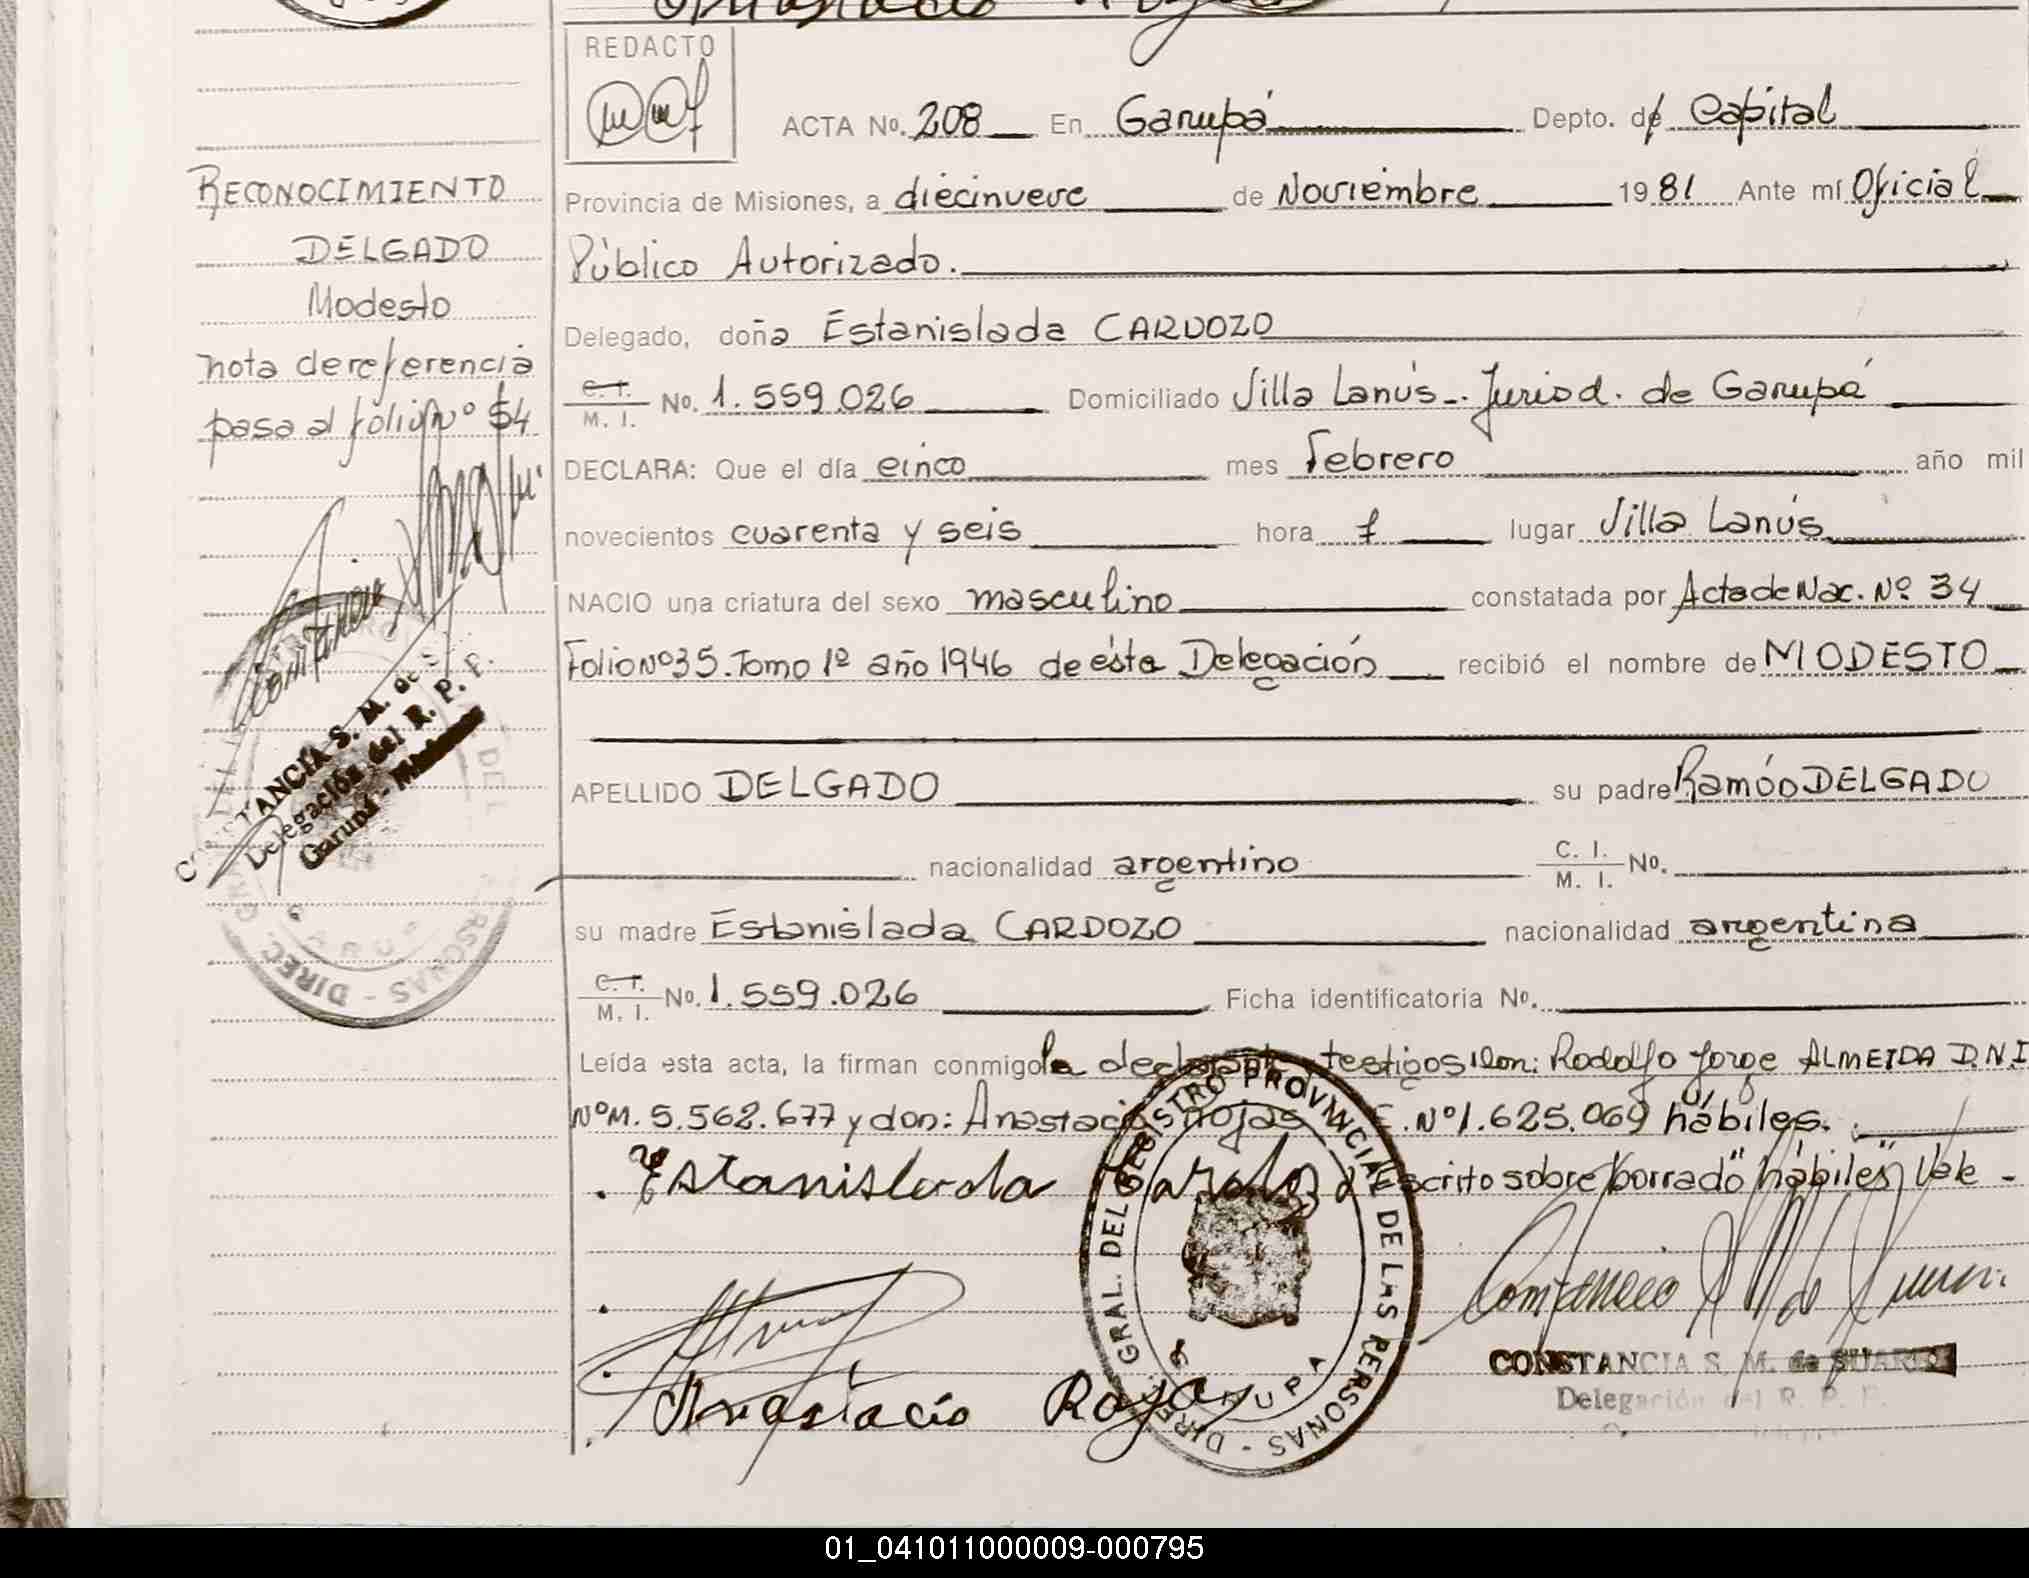 REDACTO
ACTA No. 208 En Garupá Depto. de Capital
Provincia de Misiones, a diecinueve de Noviembre 1981 Ante mí Oficial
Público Autorizado.
Delegado, doña Estanislada CARDOZO
C. I. M. I. No. 1.559.026 Domiciliado Villa Lanús.. Jurisd. de Garupá
DECLARA: Que el día cinco mes Febrero año mil
novecientos cuarenta y seis hora 1 lugar Villa Lanús
NACIO una criatura del sexo masculino constatada por Acta de Nac. Nº 34
Folio nº 35. Tomo 1º año 1946 de ésta Delegación recibió el nombre de MODESTO
APELLIDO DELGADO su padre Ramón DELGADO
nacionalidad argentino C. I. M. I. No.
su madre Estanislada CARDOZO nacionalidad argentina
C. I. M. I. No. 1.559.026 Ficha identificatoria No.
Leída esta acta, la firman conmigo la declarante, testigos don: Rodolfo Jorge ALMEIDA D.N.I
NºM. 5.562.677 y don: Anastacio Rojas E. Nº 1.625.069 hábiles.
Estanislada Cardozo Escrito sobre borrado "hábiles" Vale -
Anastacio Rojas
CONSTANCIA S. M. de SUAREZ
Delegación del R. P. P.
DIREC. GRAL. DEL REGISTRO PROVINCIAL DE LAS PERSONAS - GARUPA
RECONOCIMIENTO
DELGADO
Modesto
nota de referencia
pasa al folio nº 54
CONSTANCIA S. M. de S
Delegación del R. P. P.
Garupá - Misiones
01_041011000009-000795